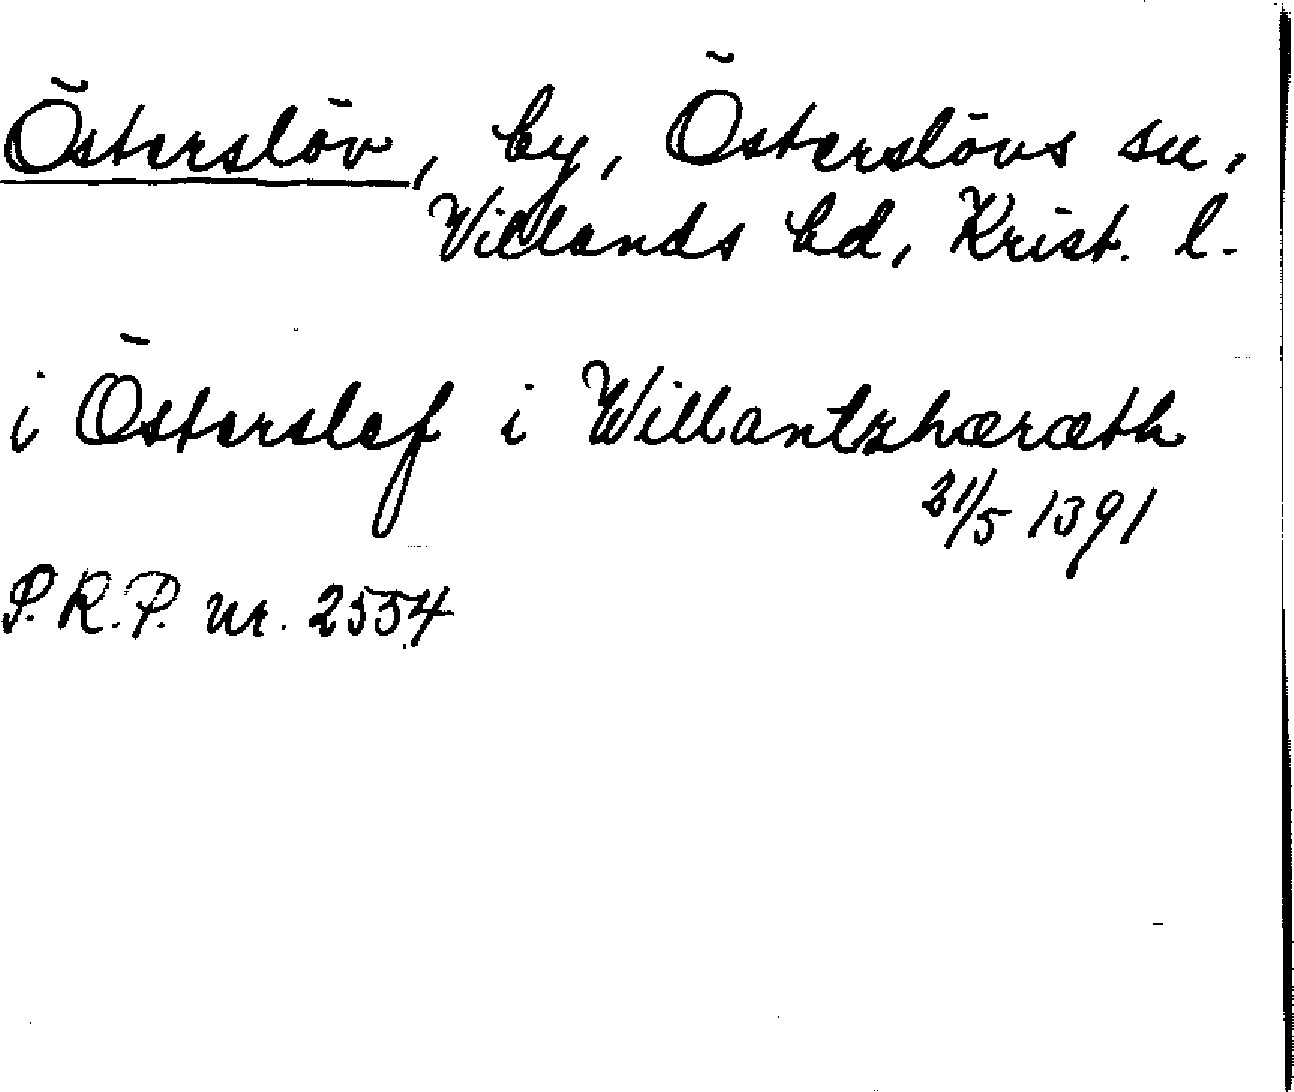 Österslöv, by, Österslövs sn,
Villands hd, Krist. l.
i Österslef i Willantzhæræth
31/5 1391
S.R.P. nr. 2554